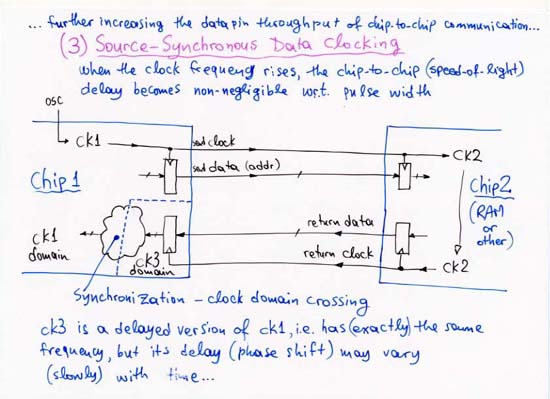 ... further increasing the data pin throughput of chip-to-chip communication...
(3) Source-Synchronous Data Clocking
when the clock frequency rises, the chip-to-chip (speed-of-light)
delay becomes non-negligible w.r.t. pulse width
OSC
CK1
send clock
CK2
send data (addr)
Chip1
Chip2
(RAM
or
other)
return data
return clock
CK1
domain
CK3
domain
CK2
Synchronization - clock domain crossing
CK3 is a delayed version of CK1, i.e. has (exactly) the same
frequency, but its delay (phase shift) may vary
(slowly) with time...